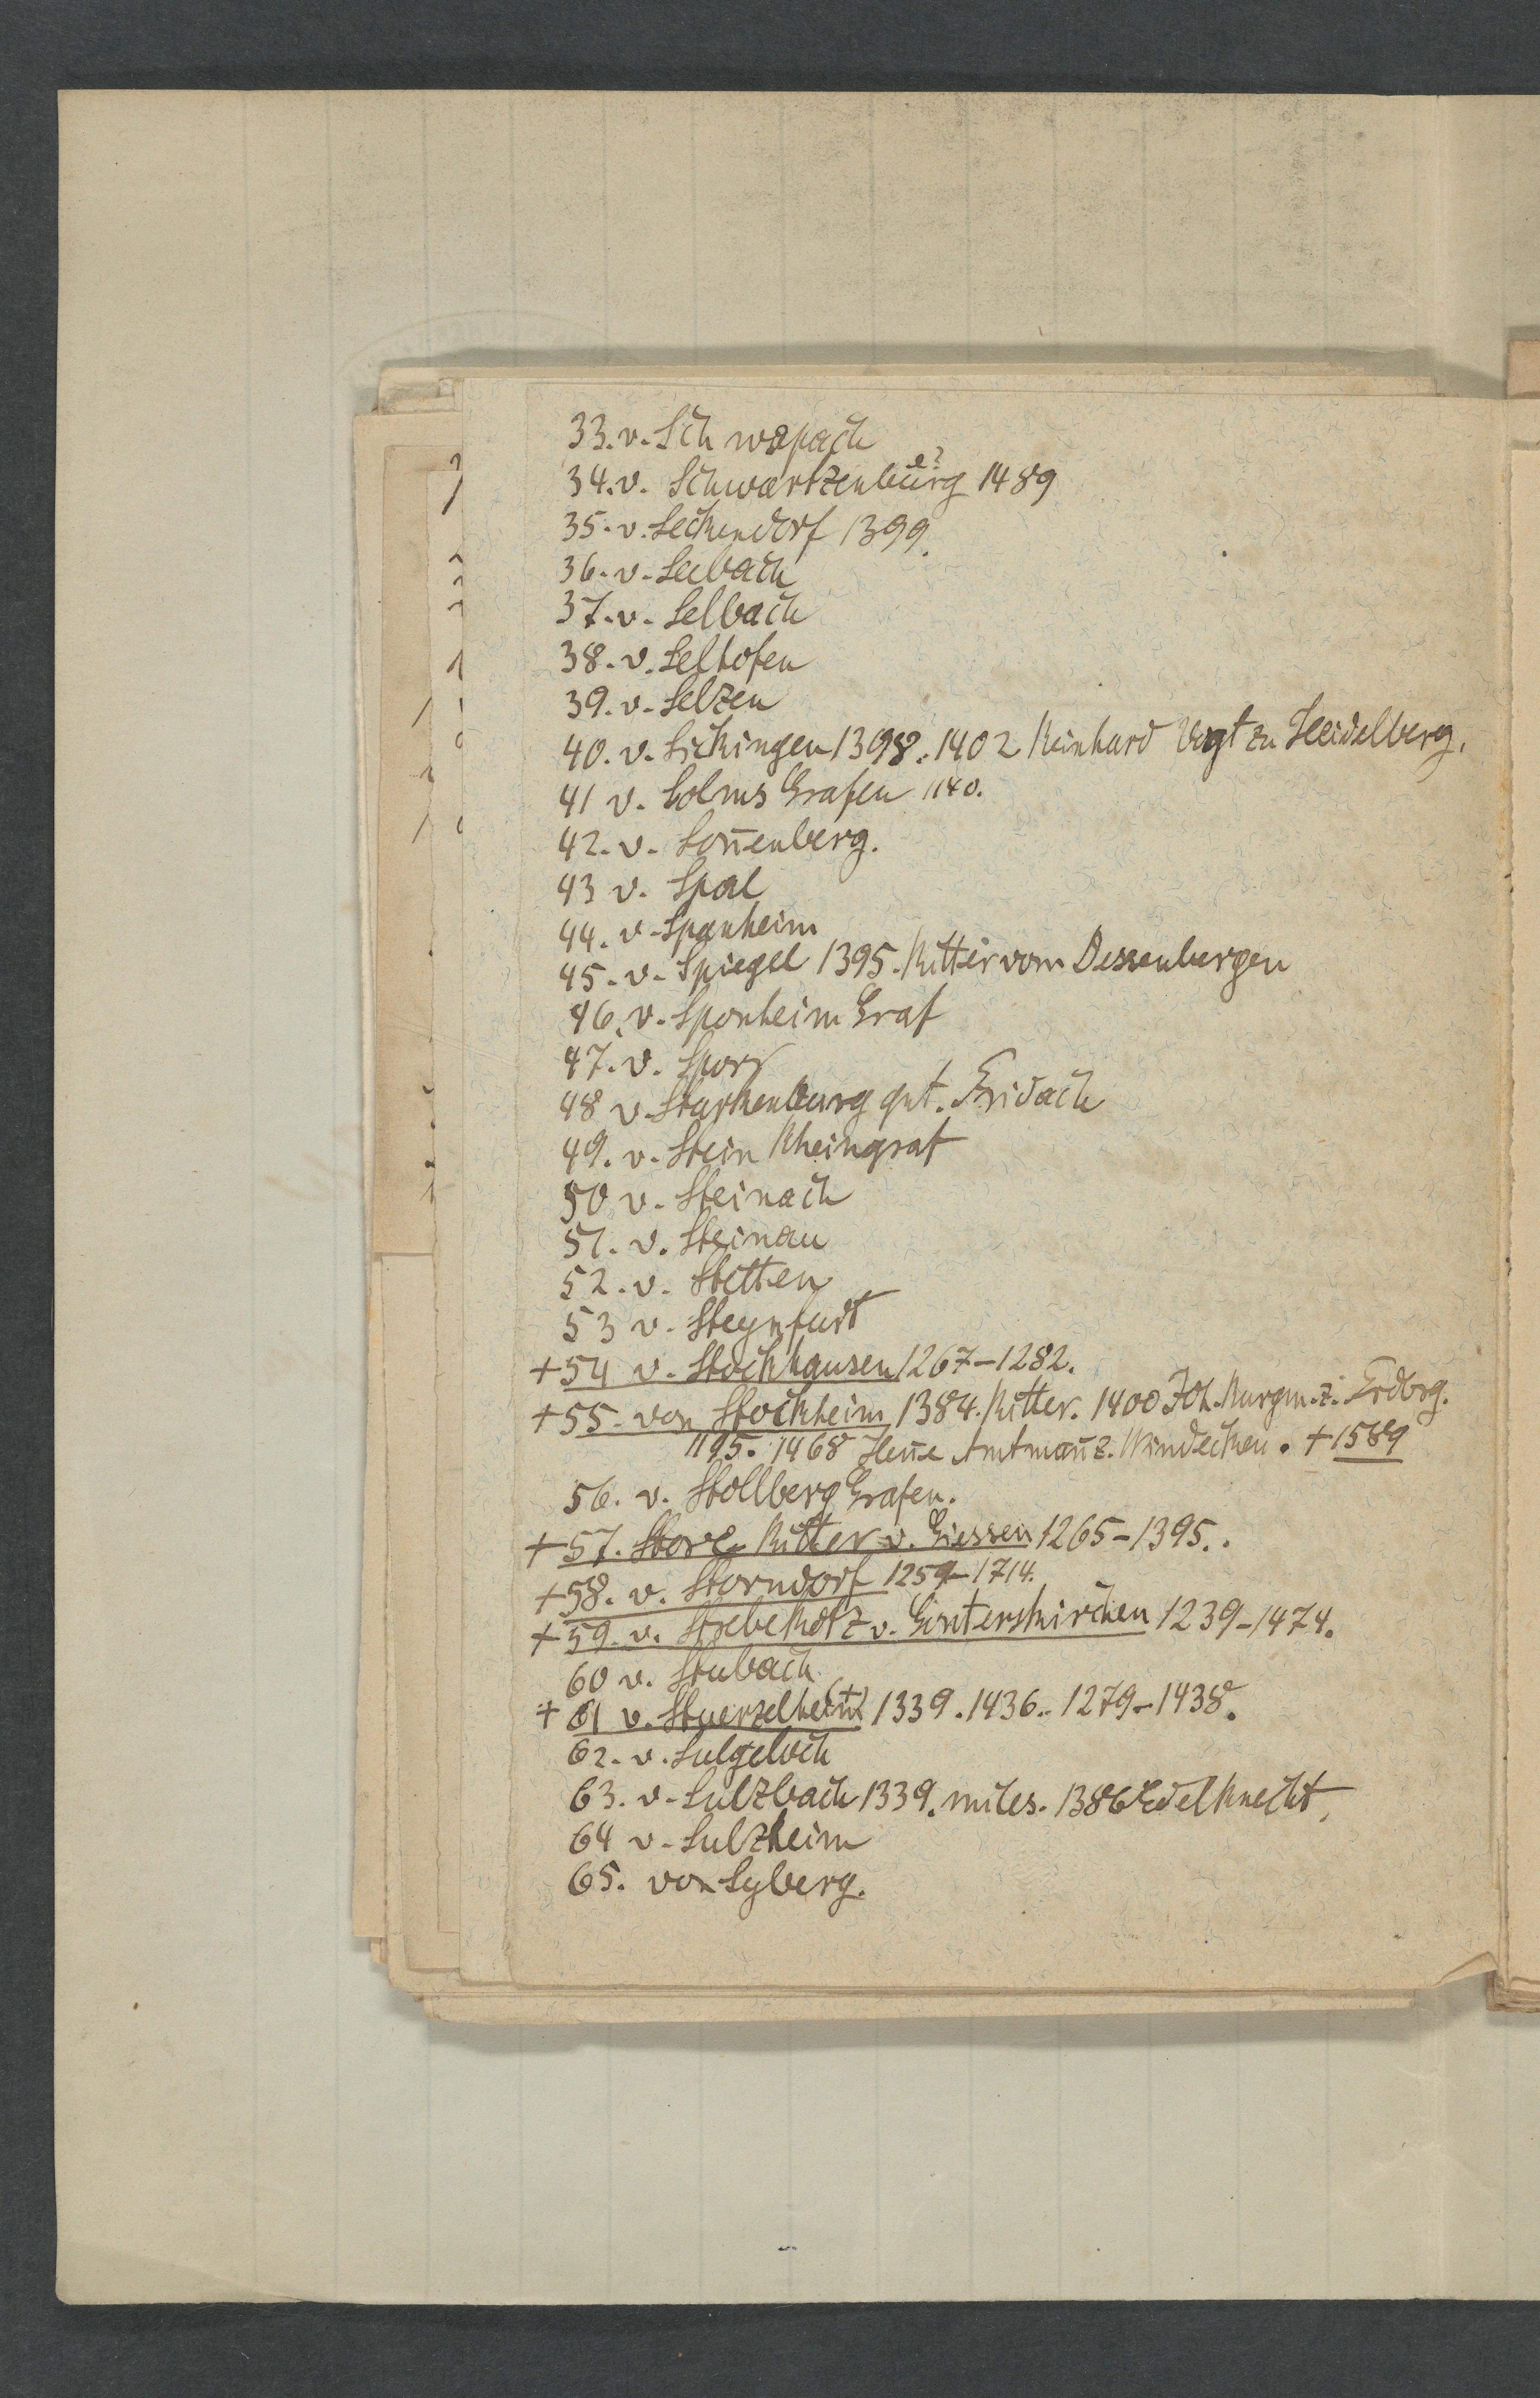 33. v. Schwapach
e?
34. v. Schwartzenburg 1489
35. v. Seckendorf 1399.
36. v. Seebach
37. v. Selbach
38. v. Selhofen
39. v. Selzen
40. v. Sickingen 1398. 1402 Reinhard Vogt zu Heidelberg.
41 v. Solms Grafen 1140.
42. v. Son̄enberg.
43 v. Spal
44. v. Spanheim
45. v. Spiegel 1395. Ritter vom Dessenbergen
46. v. Sponheim Graf
47. v. Sporr
48 v. Starkenburg gnt. Fridach
49. v. Stein Rheingraf
50 v. Steinach
51. v. Steinau
52. v. Stetten
53 v. Steynfurt
+ 54 v. Stockhausen 1267-1282.
+ 55. von Stockheim 1384. Ritter. 1400 Joh. Burgm. z. Frdbrg.
1195. 1468 Hen̄e Amtman̄ z. Windecken. + 1589
56. v. Stollberg Grafen.
+ 57. Store Ritter v. Giessen 1265-1395.
+ 58. v. Storndorf 1259-1714.
+ 59. v. Strebekotz v. Gonterskirchen 1239-1474.
60 v. Stubach
+ 61 v. Stuerzelheim (+) 1339. 1436.. 1279-1438.
62. v. Sulgeloch
63. v. Sulzbach 1339. miles. 1386 Edelknecht.
64 v. Sulzheim
65. von Syberg.